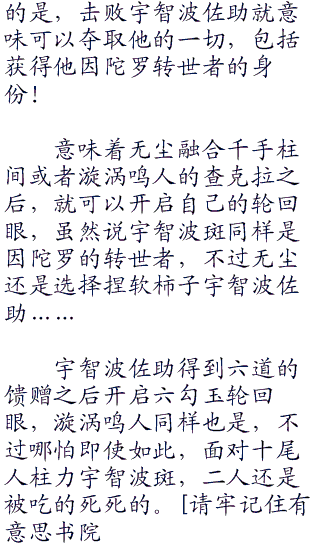 的是，击败宇智波佐助就意
味可以夺取他的一切，包括
获得他因陀罗转世者的身
份！
意味着无尘融合千手柱
间或者漩涡鸣人的查克拉之
后，就可以开启自己的轮回
眼，虽然说宇智波斑同样是
因陀罗的转世者，不过无尘
还是选择捏软柿子宇智波佐
助……
宇智波佐助得到六道的
馈赠之后开启六勾玉轮回
眼，漩涡鸣人同样也是，不
过哪怕即使如此，面对十尾
人柱力宇智波斑，二人还是
被吃的死死的。[请牢记住有
意思书院